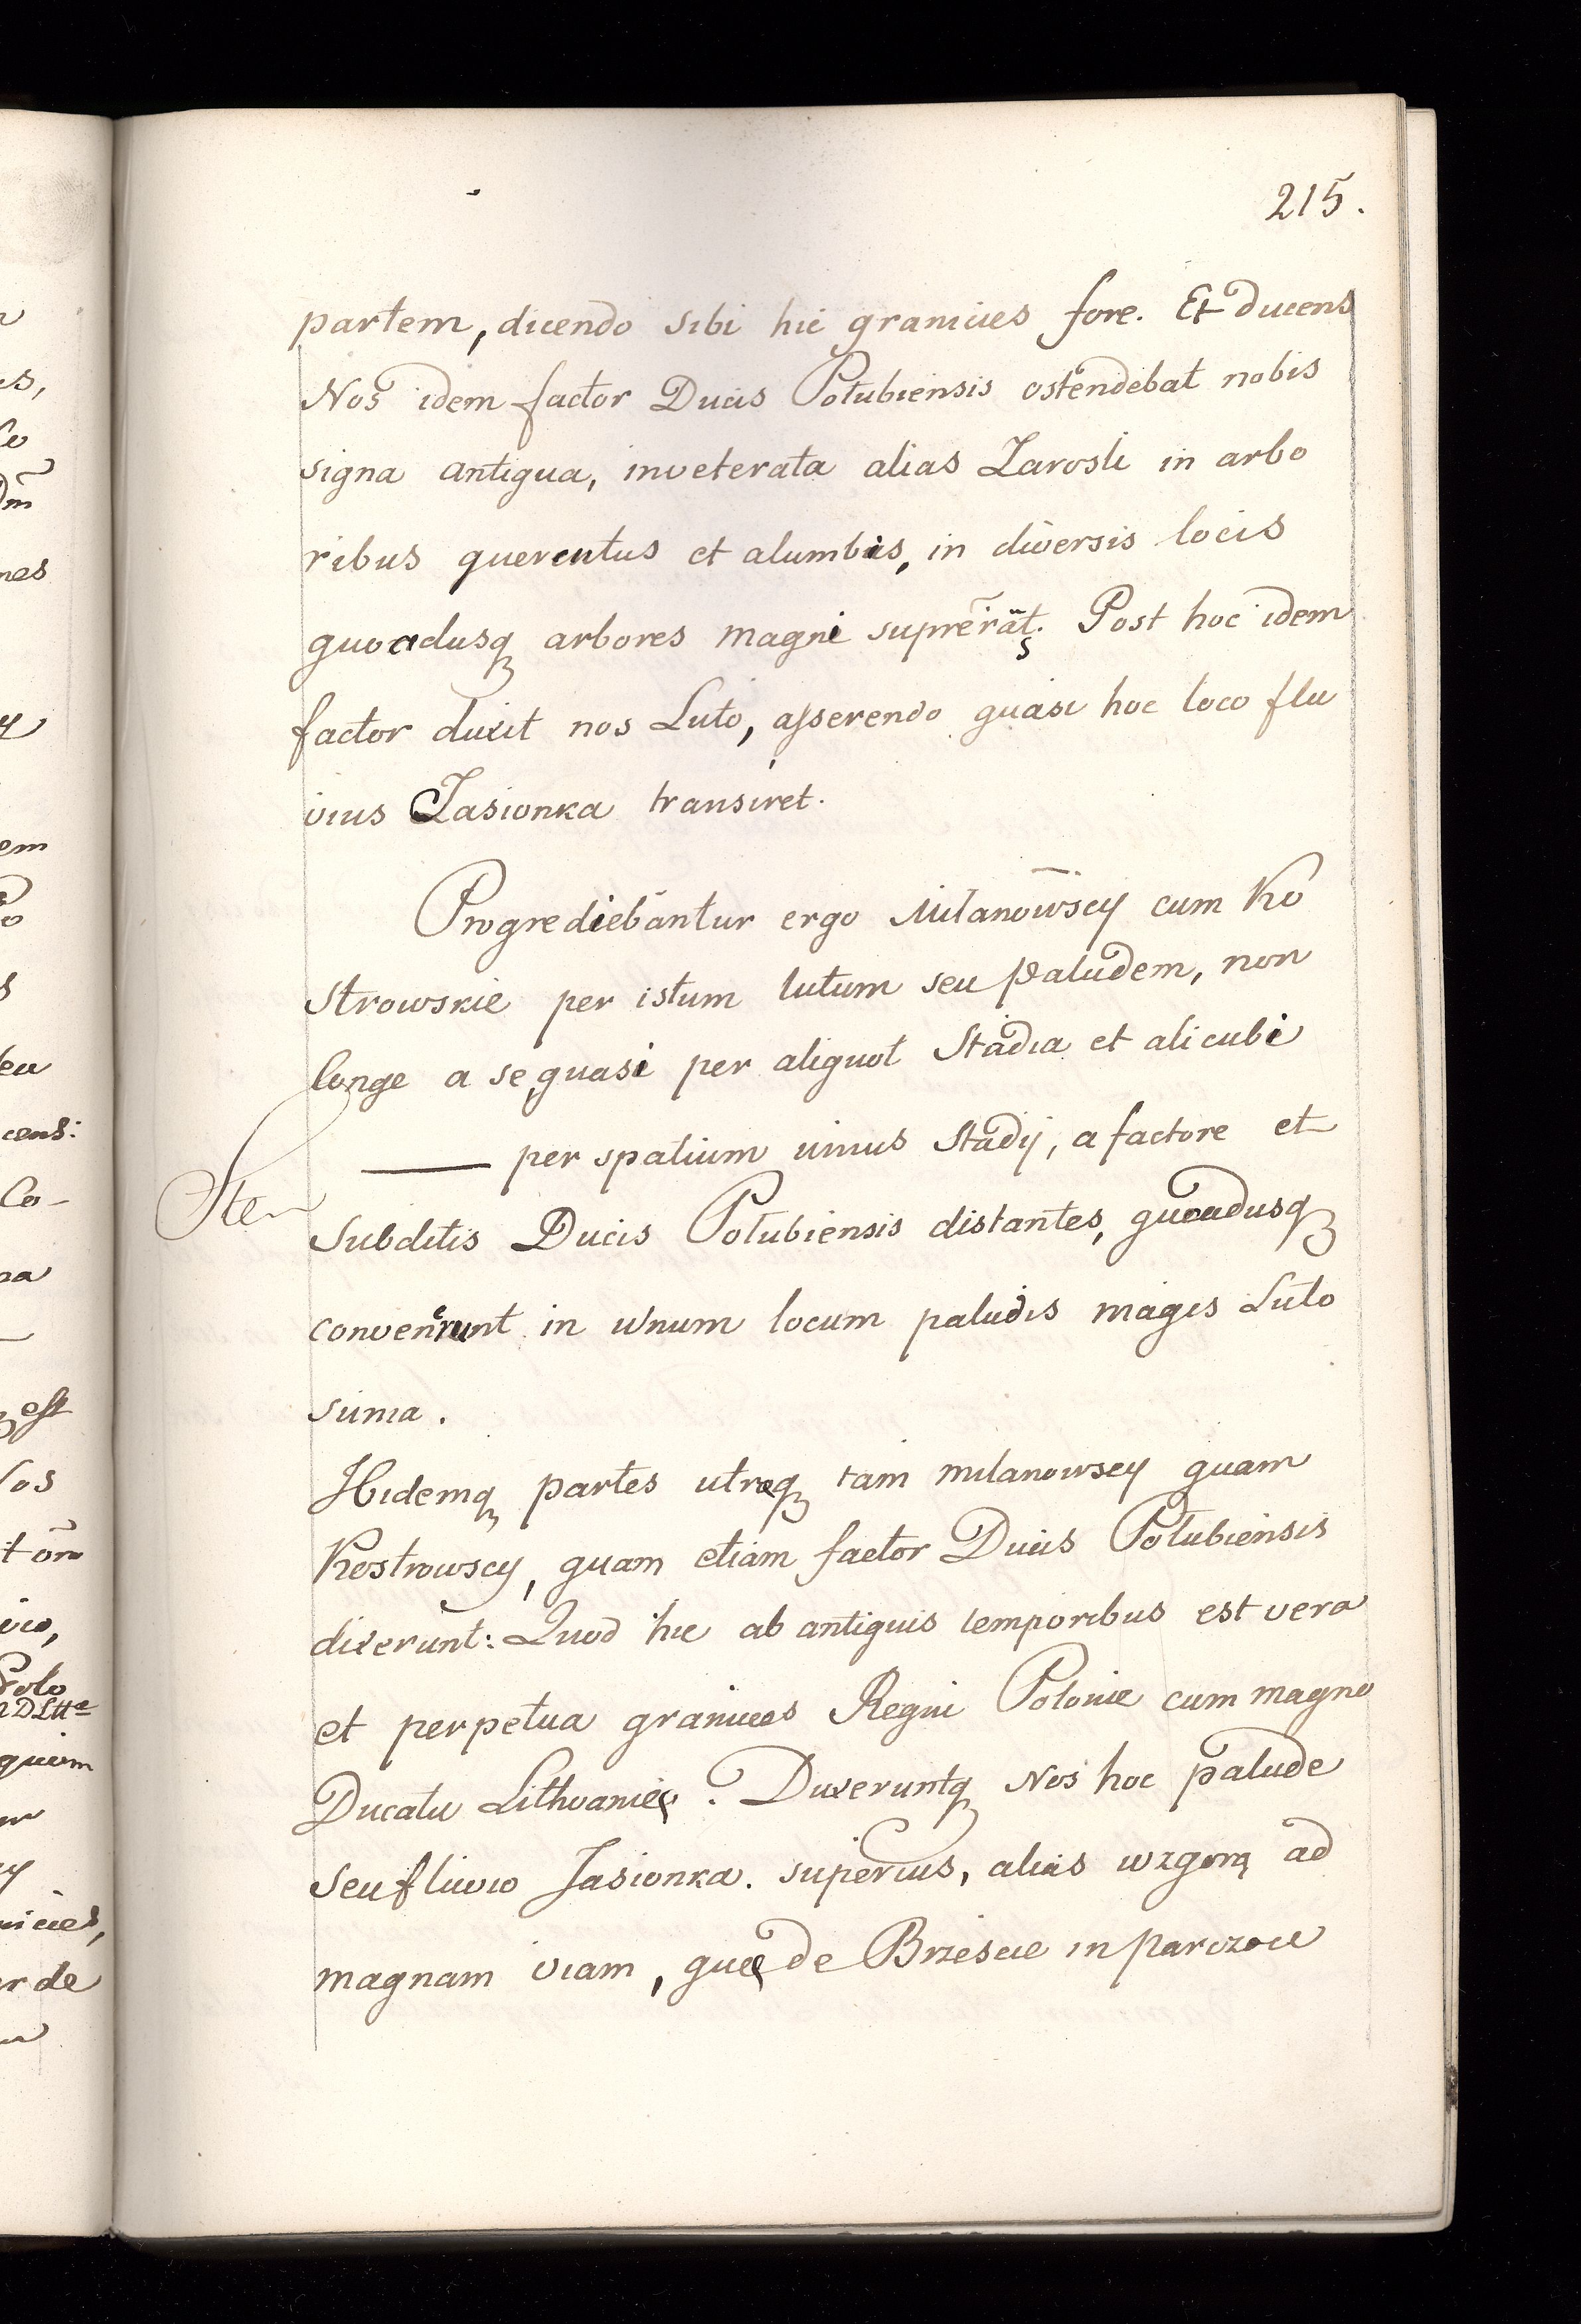 215.
partem, dicendo sibi hic granicies fore. Et ducens
Nos idem factor Ducis Połubiensis ostendebat nobis
signa antiqua, inveterata alias Zarosli in arbo
ribus quercutus et alumbis, in diversis locis
quoadusqꝫ arbores magni
Post hoc idem
factor duxit nos Luto, asserendo quasi hoc loco flu
vius Jasionka transiret.
Progrediebantur ergo Milanowscy cum Ko
strowskie per istum lutum seu paludem, non
longe a se quasi per aliquot Stadia et alicubi
per spatium unius Stadij, a factore et
Subditis Ducis Połubiensis distantes, quoadusqꝫ
convenerunt in unum locum paludis magis Luto
suma.
Ibidemqꝫ partes utræqꝫ tam milanowscy quam
Kostrowscy, quam etiam factor Ducis Połubiensis
dixerunt: Quod hic ab antiquis temporibus est vera
et perpetua granicies Regni Polonie cum magno
Ducatu Lithvanię. Duxeruntqꝫ Nos hoc palude
Seu fluvio Jasionka. superius, alias wzgorę ad
magnam viam, quę de Brzescie in parczow